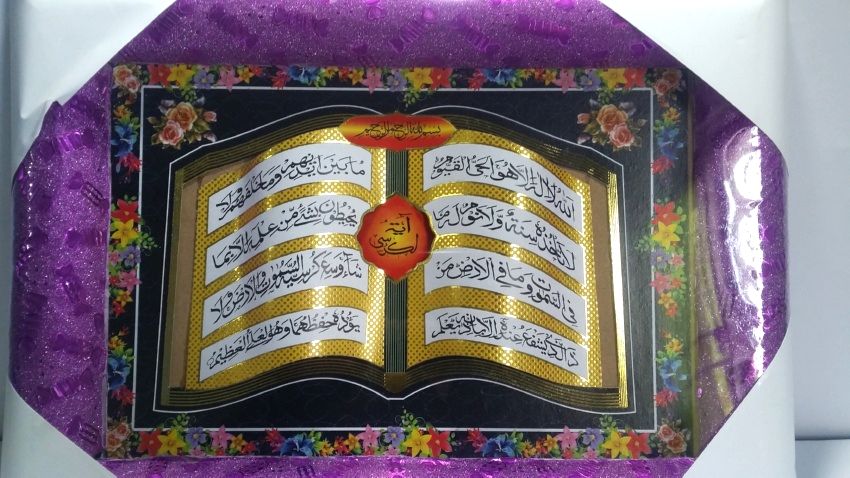 بسم الله الرحمن الرحيم
آية
الكرسي
الله لا اله الا هو الحي القيوم
لا تاخذه سنة ولا نوم له ما
في السموت وما في الارض من
ذا الذي يشفع عنده الا باذنه يعلم
ما بين ايديهم وما خلفهم ولا
يحيطون بشئ من علمه الا بما
شاء وسع كرسيه السموت والارض ولا
يؤده حفظهما وهو العلي العظيم